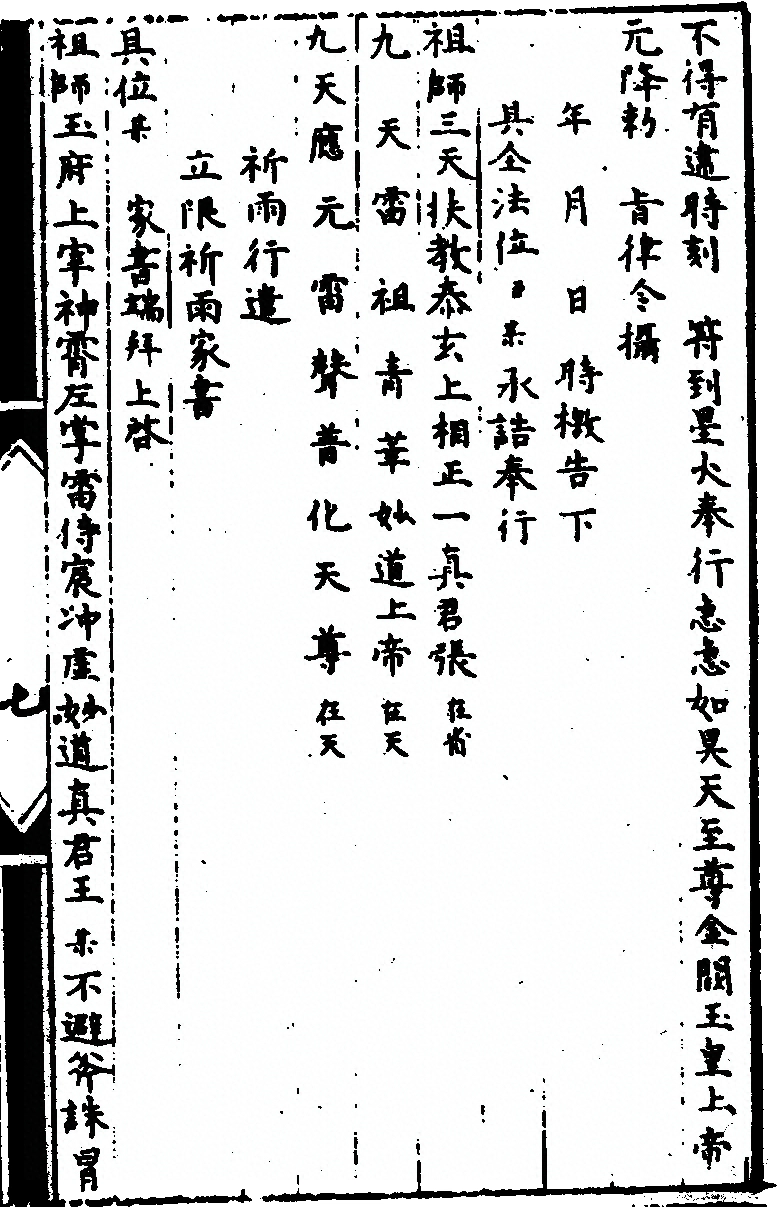 不得有違時刻　符到星火奉行恚恚如昊天至尊金闕玉皇上帝
元降勑　旨律令攝
年　月　日　時檄告下
具全法位王某承誥奉行
祖師三天扶教泰玄上相正一真君張在省
九天雷祖青華妙道上帝在天
九天應元雷聲普化天尊在天
祈雨行遣
立限祈雨家書
具位某　家書端拜上啓
祖師玉府上宰神霄左掌雷侍宸冲虛妙道真君王某不避斧誅冐
七